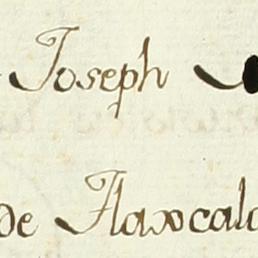 Joseph
de Tlaxcala